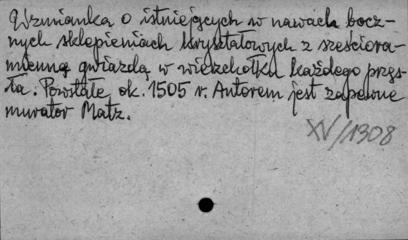 Wzmianka o istniejących w nawach bocz-
nych sklepieniach kryształowych z sześciora-
mienną gwiazdą w wierzchołku każdego przęs-
ła. Powstałe ok. 1505 r. Autorem jest zapewne
murator Matz.
XV/1308